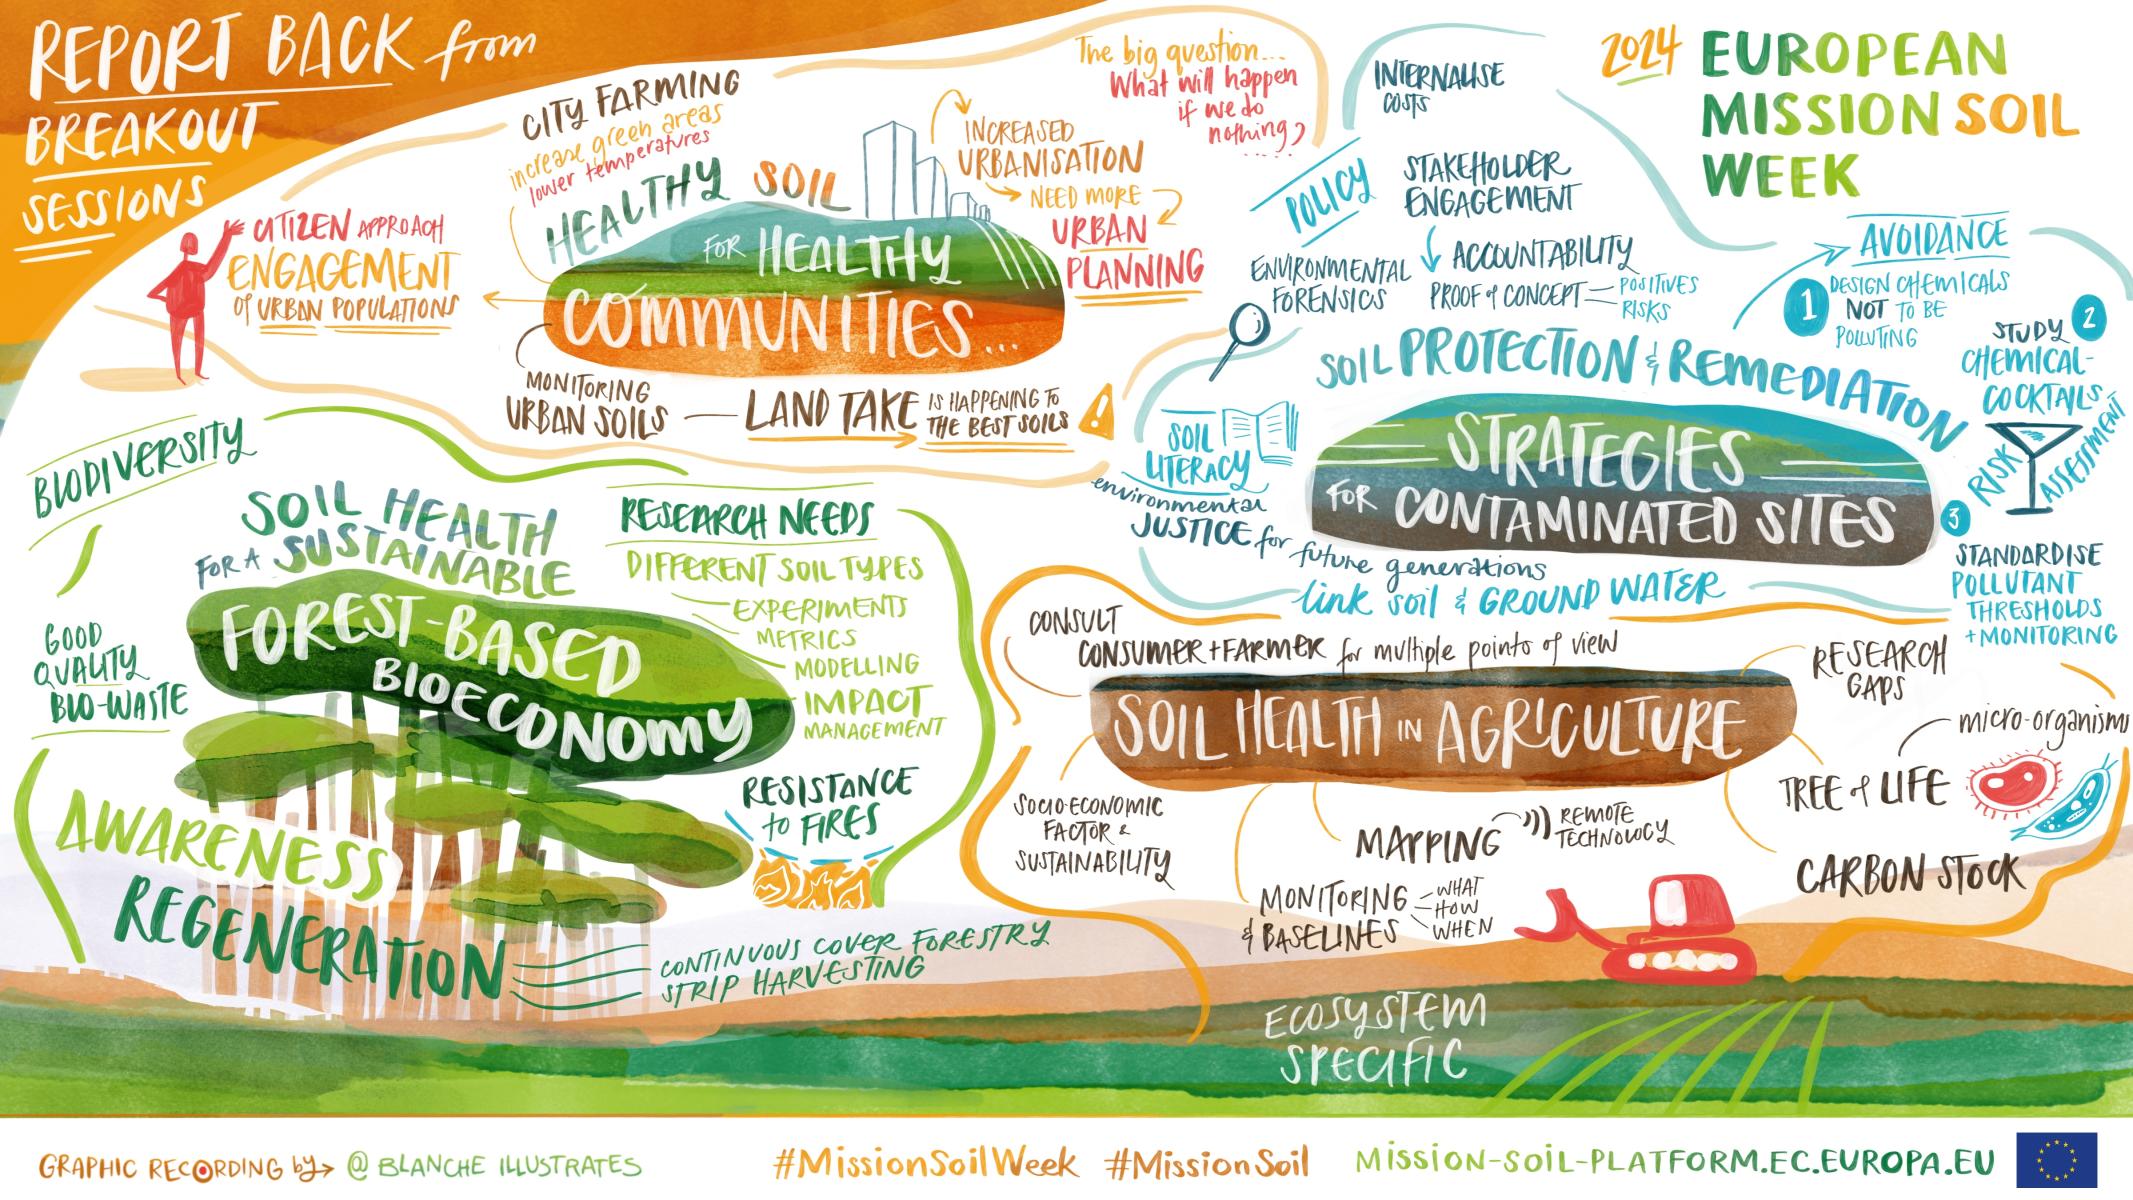 REPORT BACK from
BREAKOUT
SESSIONS
2024 EUROPEAN
MISSION SOIL
WEEK
CITY FARMING
increase green areas
lower temperatures
HEALTHY SOIL
FOR HEALTHY
COMMUNITIES...
CITIZEN APPROACH
ENGAGEMENT
of URBAN POPULATIONS
INCREASED
URBANISATION
NEED MORE
URBAN
PLANNING
The big question...
What will happen
if we do
nothing?
MONITORING
URBAN SOILS
LAND TAKE IS HAPPENING TO
THE BEST SOILS
!
INTERNALISE
COSTS
POLICY
STAKEHOLDER
ENGAGEMENT
ACCOUNTABILITY
PROOF of CONCEPT
POSITIVES
RISKS
ENVIRONMENTAL
FORENSICS
AVOIDANCE
1 DESIGN CHEMICALS
NOT TO BE
POLLUTING
2 STUDY
CHEMICAL-
COCKTAILS
RISK ASSESSMENT
3
STANDARDISE
POLLUTANT
THRESHOLDS
+ MONITORING
SOIL PROTECTION & REMEDIATION
STRATEGIES
FOR CONTAMINATED SITES
SOIL
LITERACY
environmental
JUSTICE for future generations
link soil & GROUND WATER
BIODIVERSITY
SOIL HEALTH
FOR A SUSTAINABLE
FOREST-BASED
BIOECONOMY
GOOD
QUALITY
BIO-WASTE
RESEARCH NEEDS
DIFFERENT SOIL TYPES
EXPERIMENTS
METRICS
MODELLING
IMPACT
MANAGEMENT
RESISTANCE
to FIRES
AWARENESS
REGENERATION
CONTINUOUS COVER FORESTRY
STRIP HARVESTING
CONSULT
CONSUMER + FARMER for multiple points of view
SOIL HEALTH IN AGRICULTURE
RESEARCH
GAPS
micro-organisms
TREE of LIFE
CARBON STOCK
SOCIO-ECONOMIC
FACTOR &
SUSTAINABILITY
MAPPING
REMOTE
TECHNOLOGY
MONITORING
& BASELINES
WHAT
HOW
WHEN
ECOSYSTEM
SPECIFIC
GRAPHIC RECORDING by → @ BLANCHE ILLUSTRATES
#MissionSoilWeek #MissionSoil
MISSION-SOIL-PLATFORM.EC.EUROPA.EU